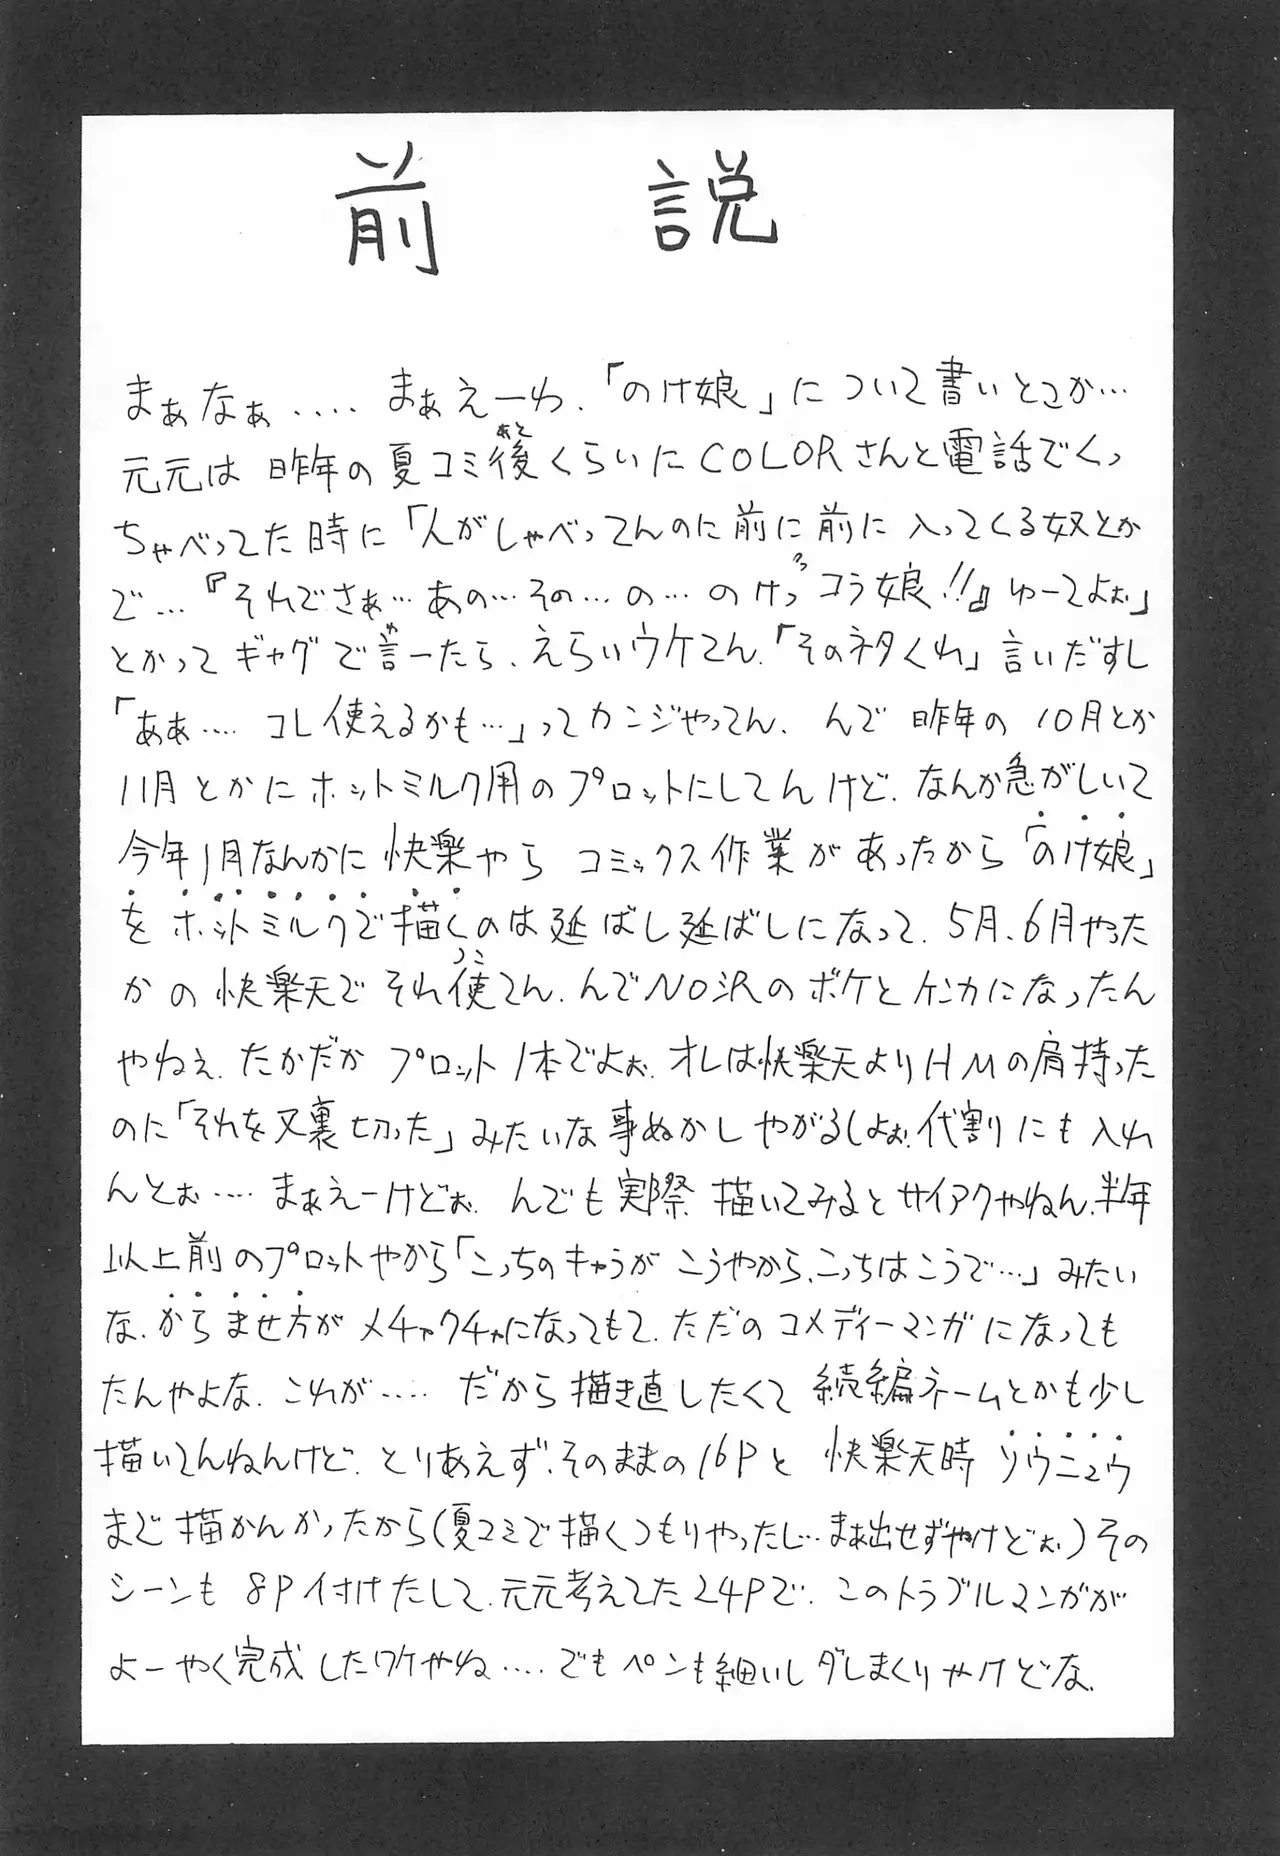 前説
まぁなぁ‥‥ まぁえーわ.「のけ娘」について書いとこか…
元元は昨年の夏コミ後くらいにCOLORさんと電話でくっ
ちゃべってた時に「人がしゃべってんのに前に前に入ってくる奴とか
で…『それでさぁ…あの…その…の…のけっコラ娘!!』ゆーてよぉ」
とかってギャグで言ーたら、えらいウケてん.「そのネタくれ」言いだすし
「あぁ‥‥コレ使えるかも…」ってカンジやってん、んで昨年の10月とか
11月とかにホットミルク用のプロットにしてんけど、なんか急がしいて
今年1月なんかに快楽やらコミックス作業があったから「のけ娘」
をホットミルクで描くのは延ばし延ばしになって、5月、6月やった
かの快楽天でそれ使てん、んでNO沢のボケとケンカになったん
やねぇ、たかだかプロット1本でよぉ、オレは快楽天よりHMの肩持った
のに「それを又裏切った」みたいな事ぬかしやがるしよぉ、代割にも入れ
んとぉ‥‥まぁえーけどぉ、んでも実際描いてみるとサイアクやねん、半年
以上前のプロットやから「こっちのキャラがこうやから、こっちはこうで…」みたい
な、からませ方がメチャクチャになってもて、ただのコメディーマンガになっても
たんやよな、これが‥‥だから描き直したくて続編ネームとかも少し
描いてんねんけど、とりあえず、そのままの16Pと快楽天時ソウニュウ
まで描かんかったから(夏コミで描くつもりやったし…まぁ出せずやけどぉ)その
シーンも8P付けたして、元元考えてた24Pで、このトラブルマンガが
よーやく完成したワケやね‥‥でもペンも細いしダしまくりやけどな.